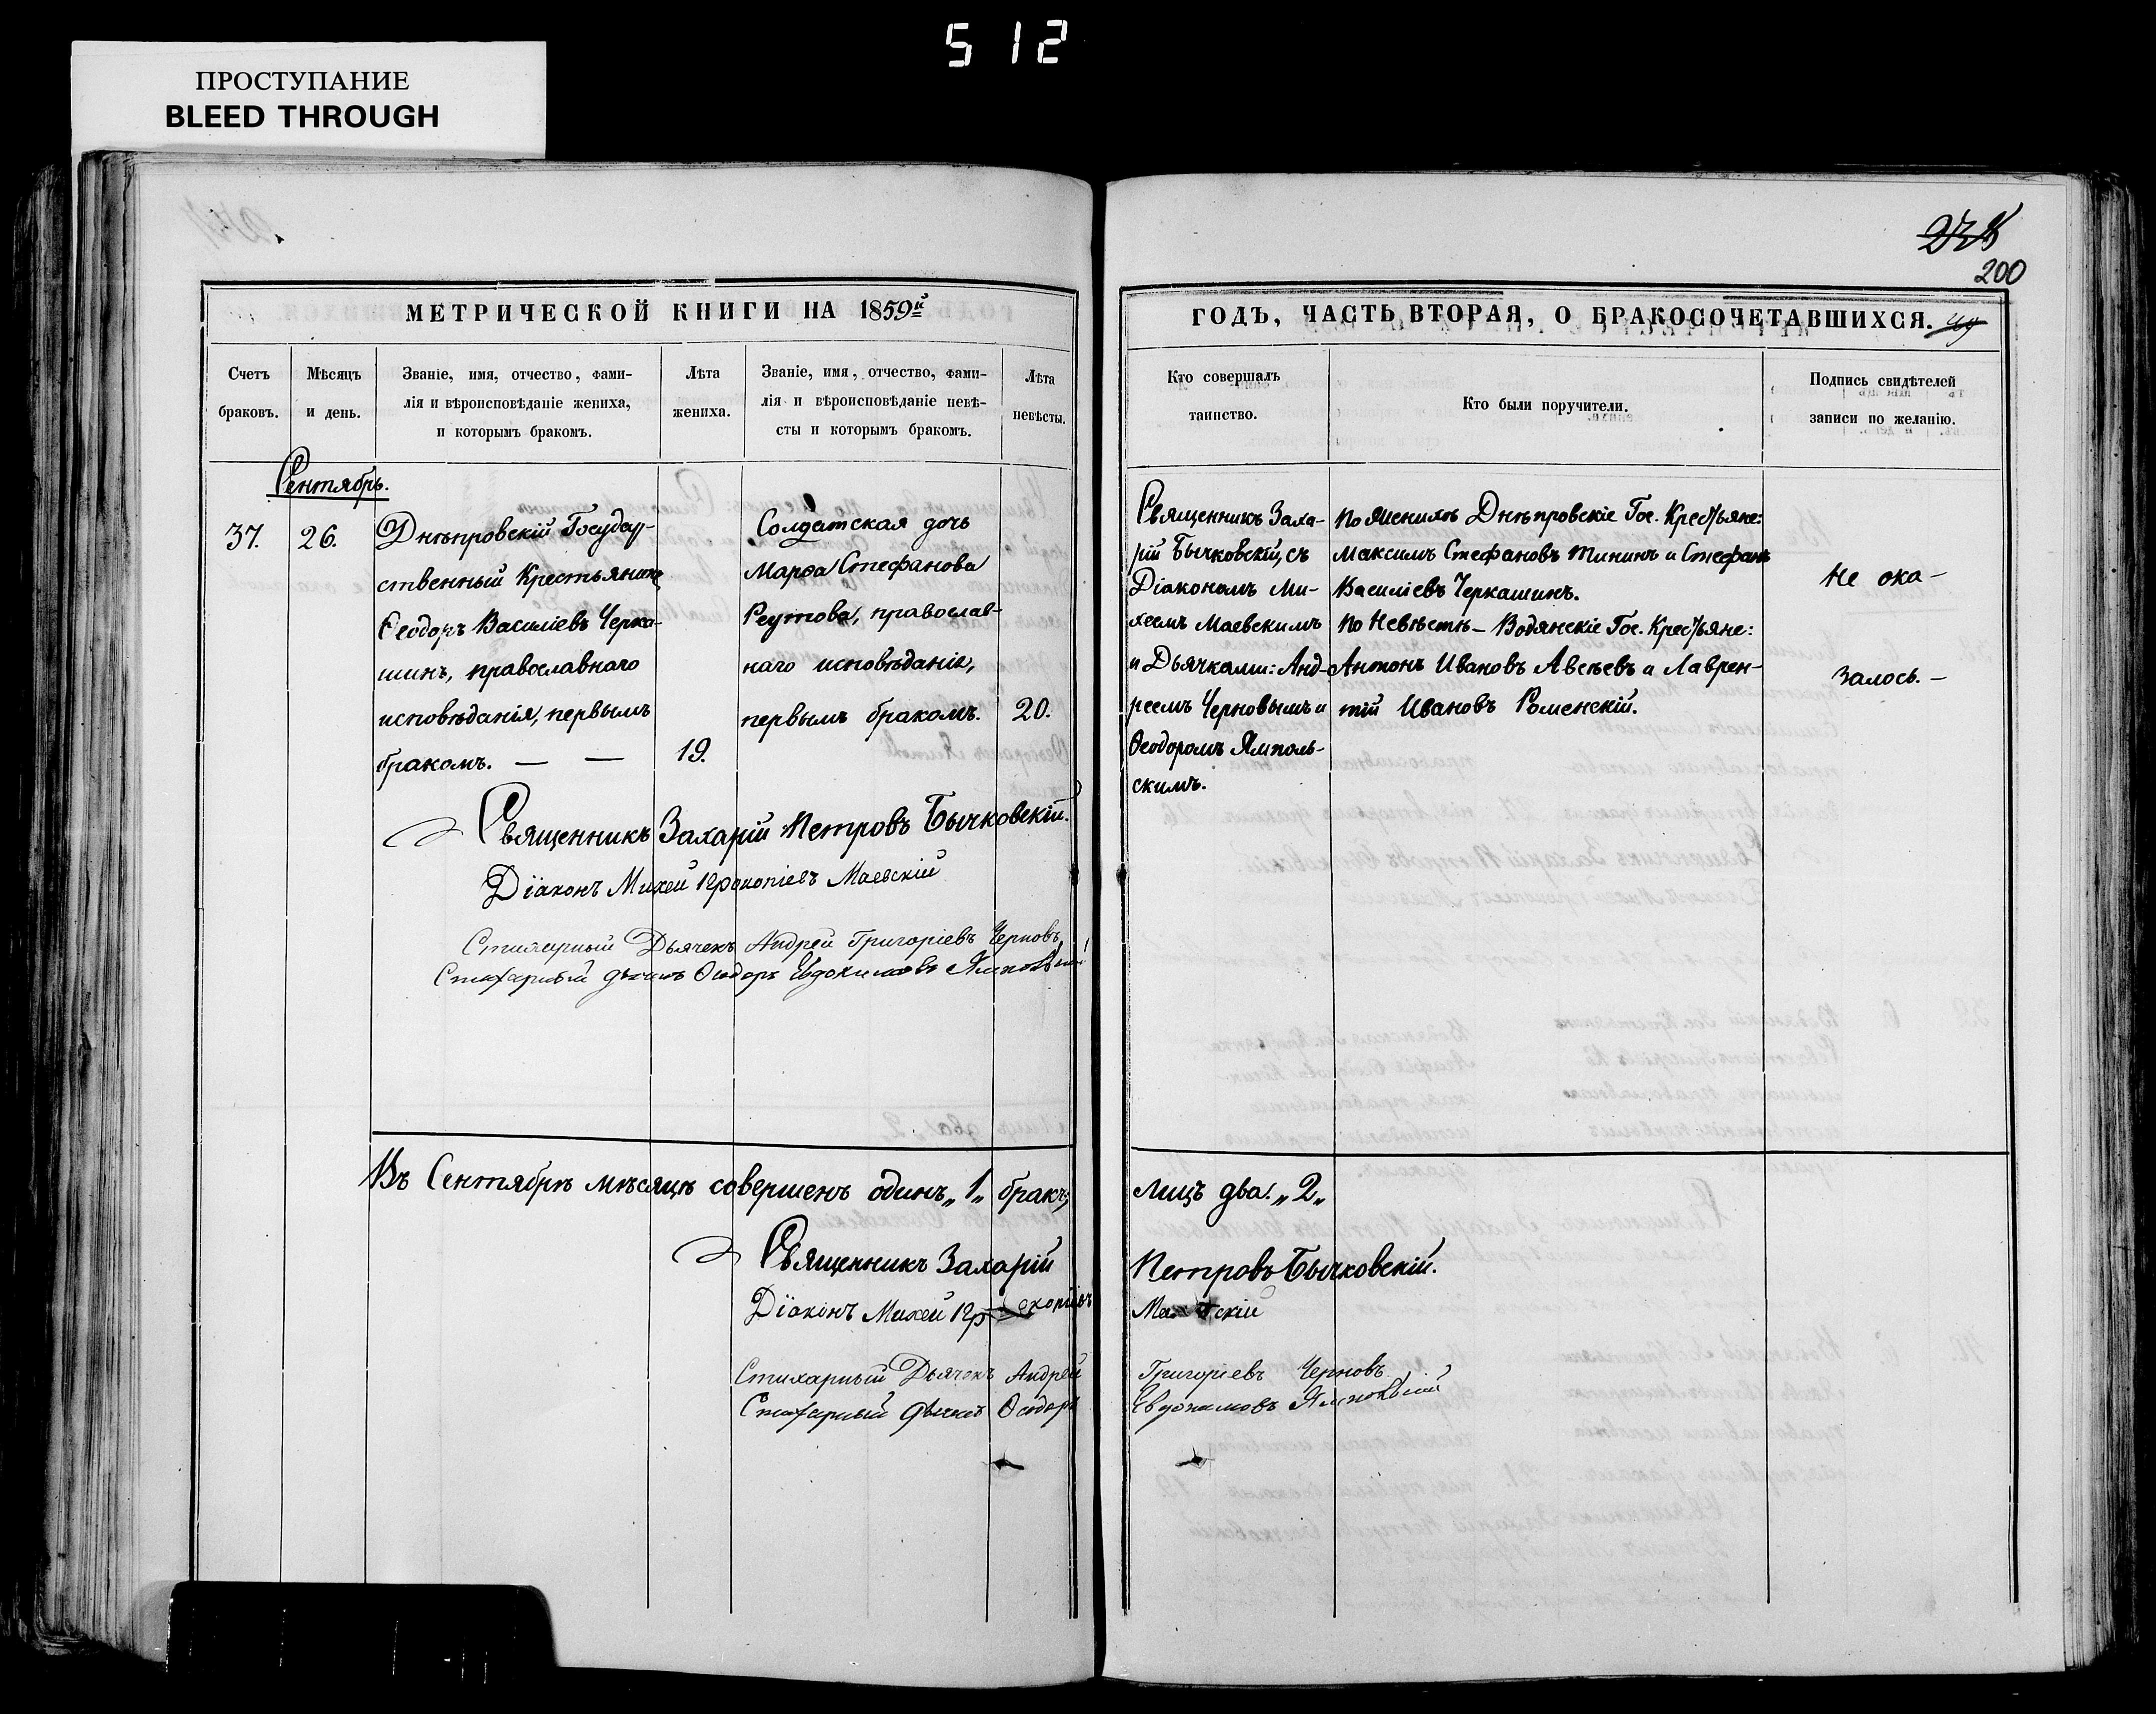 512
ПРОСТУПАНИЕ
BLEED THROUGH
200
МЕТРИЧЕСКОЙ КНИГИ НА 1859й
ГОДЪ, ЧАСТЬ ВТОРАЯ, О БРАКОСОЧЕТАВШИХСЯ. 49
Счетъ
браковъ.
Мѣсяцъ
и день.
Званіе, имя, отчество, фами-
лія и вѣроисповѣданіе жениха,
и которымъ бракомъ.
Лѣта
жениха.
Званіе, имя, отчество, фами-
лія и вѣроисповѣданіе невѣ-
сты и которымъ бракомъ.
Лѣта
невѣсты.
Кто совершалъ
таинство.
Кто были поручители.
Подпись свидѣтелей
записи по желанію.
Сентябрь.
37.
26.
Днѣпровскій Государ-
ственный Крестьянинъ
Ѳеодоръ Василіевъ Черка-
шинъ, православнаго
исповѣданія, первымъ
бракомъ. — —
19.
Солдатская дочь
Марѳа Стефанова
Реутова, православ-
наго исповѣданія,
первымъ бракомъ.
20.
Священникъ Заха-
рій Бычковскій, съ
Діакономъ Ми-
хеемъ Маевскимъ
и Дьячками: Анд-
реемъ Черновымъ и
Ѳеодоромъ Ямполь-
скимъ.
По Женихѣ Днѣпровскіе Гос. Крестьяне:
Максимъ Стефановъ Тининъ и Стефанъ
Василіевъ Черкашинъ.
По Невѣстѣ – Водянскіе Гос. Крестьяне:
Антонъ Ивановъ Авсѣевъ и Лаврен-
тій Ивановъ Роменскій.
Не ока–
залось. –
Священникъ Захарій Петровъ Бычковскій.
Діаконъ Михей Прокопіевъ Маевскій
Стихарный Дьячекъ Андрей Григоріевъ Черновъ
Стихарный дьячекъ Ѳеодоръ Евдокимовъ Ямпольскій
Въ Сентябрѣ мѣсяцѣ совершенъ одинъ „1„ бракъ,
лицъ два. „2„
Священникъ Захарій Петровъ Бычковскій.
Діаконъ Михей Прокопіевъ Маевскій
Стихарный Дьячекъ Андрей Григоріевъ Черновъ
Стихарный дьячекъ Ѳеодоръ Евдокимовъ Ямпольскій